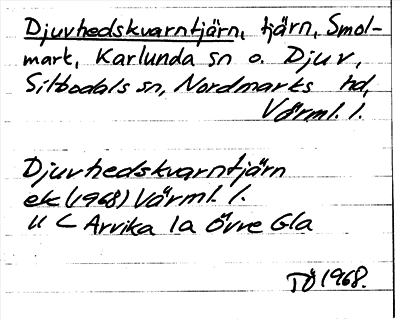 Djuvhedskvarntjärn, tjärn, Smol-
mark, Karlanda sn o. Djuv,
Silbodals sn, Nordmarks hd,
Värml. l.
Djuvhedskvarntjärn
ek (1968) Värml. l.
U L Arvika 1a Övre Gla
TÖ 1968.